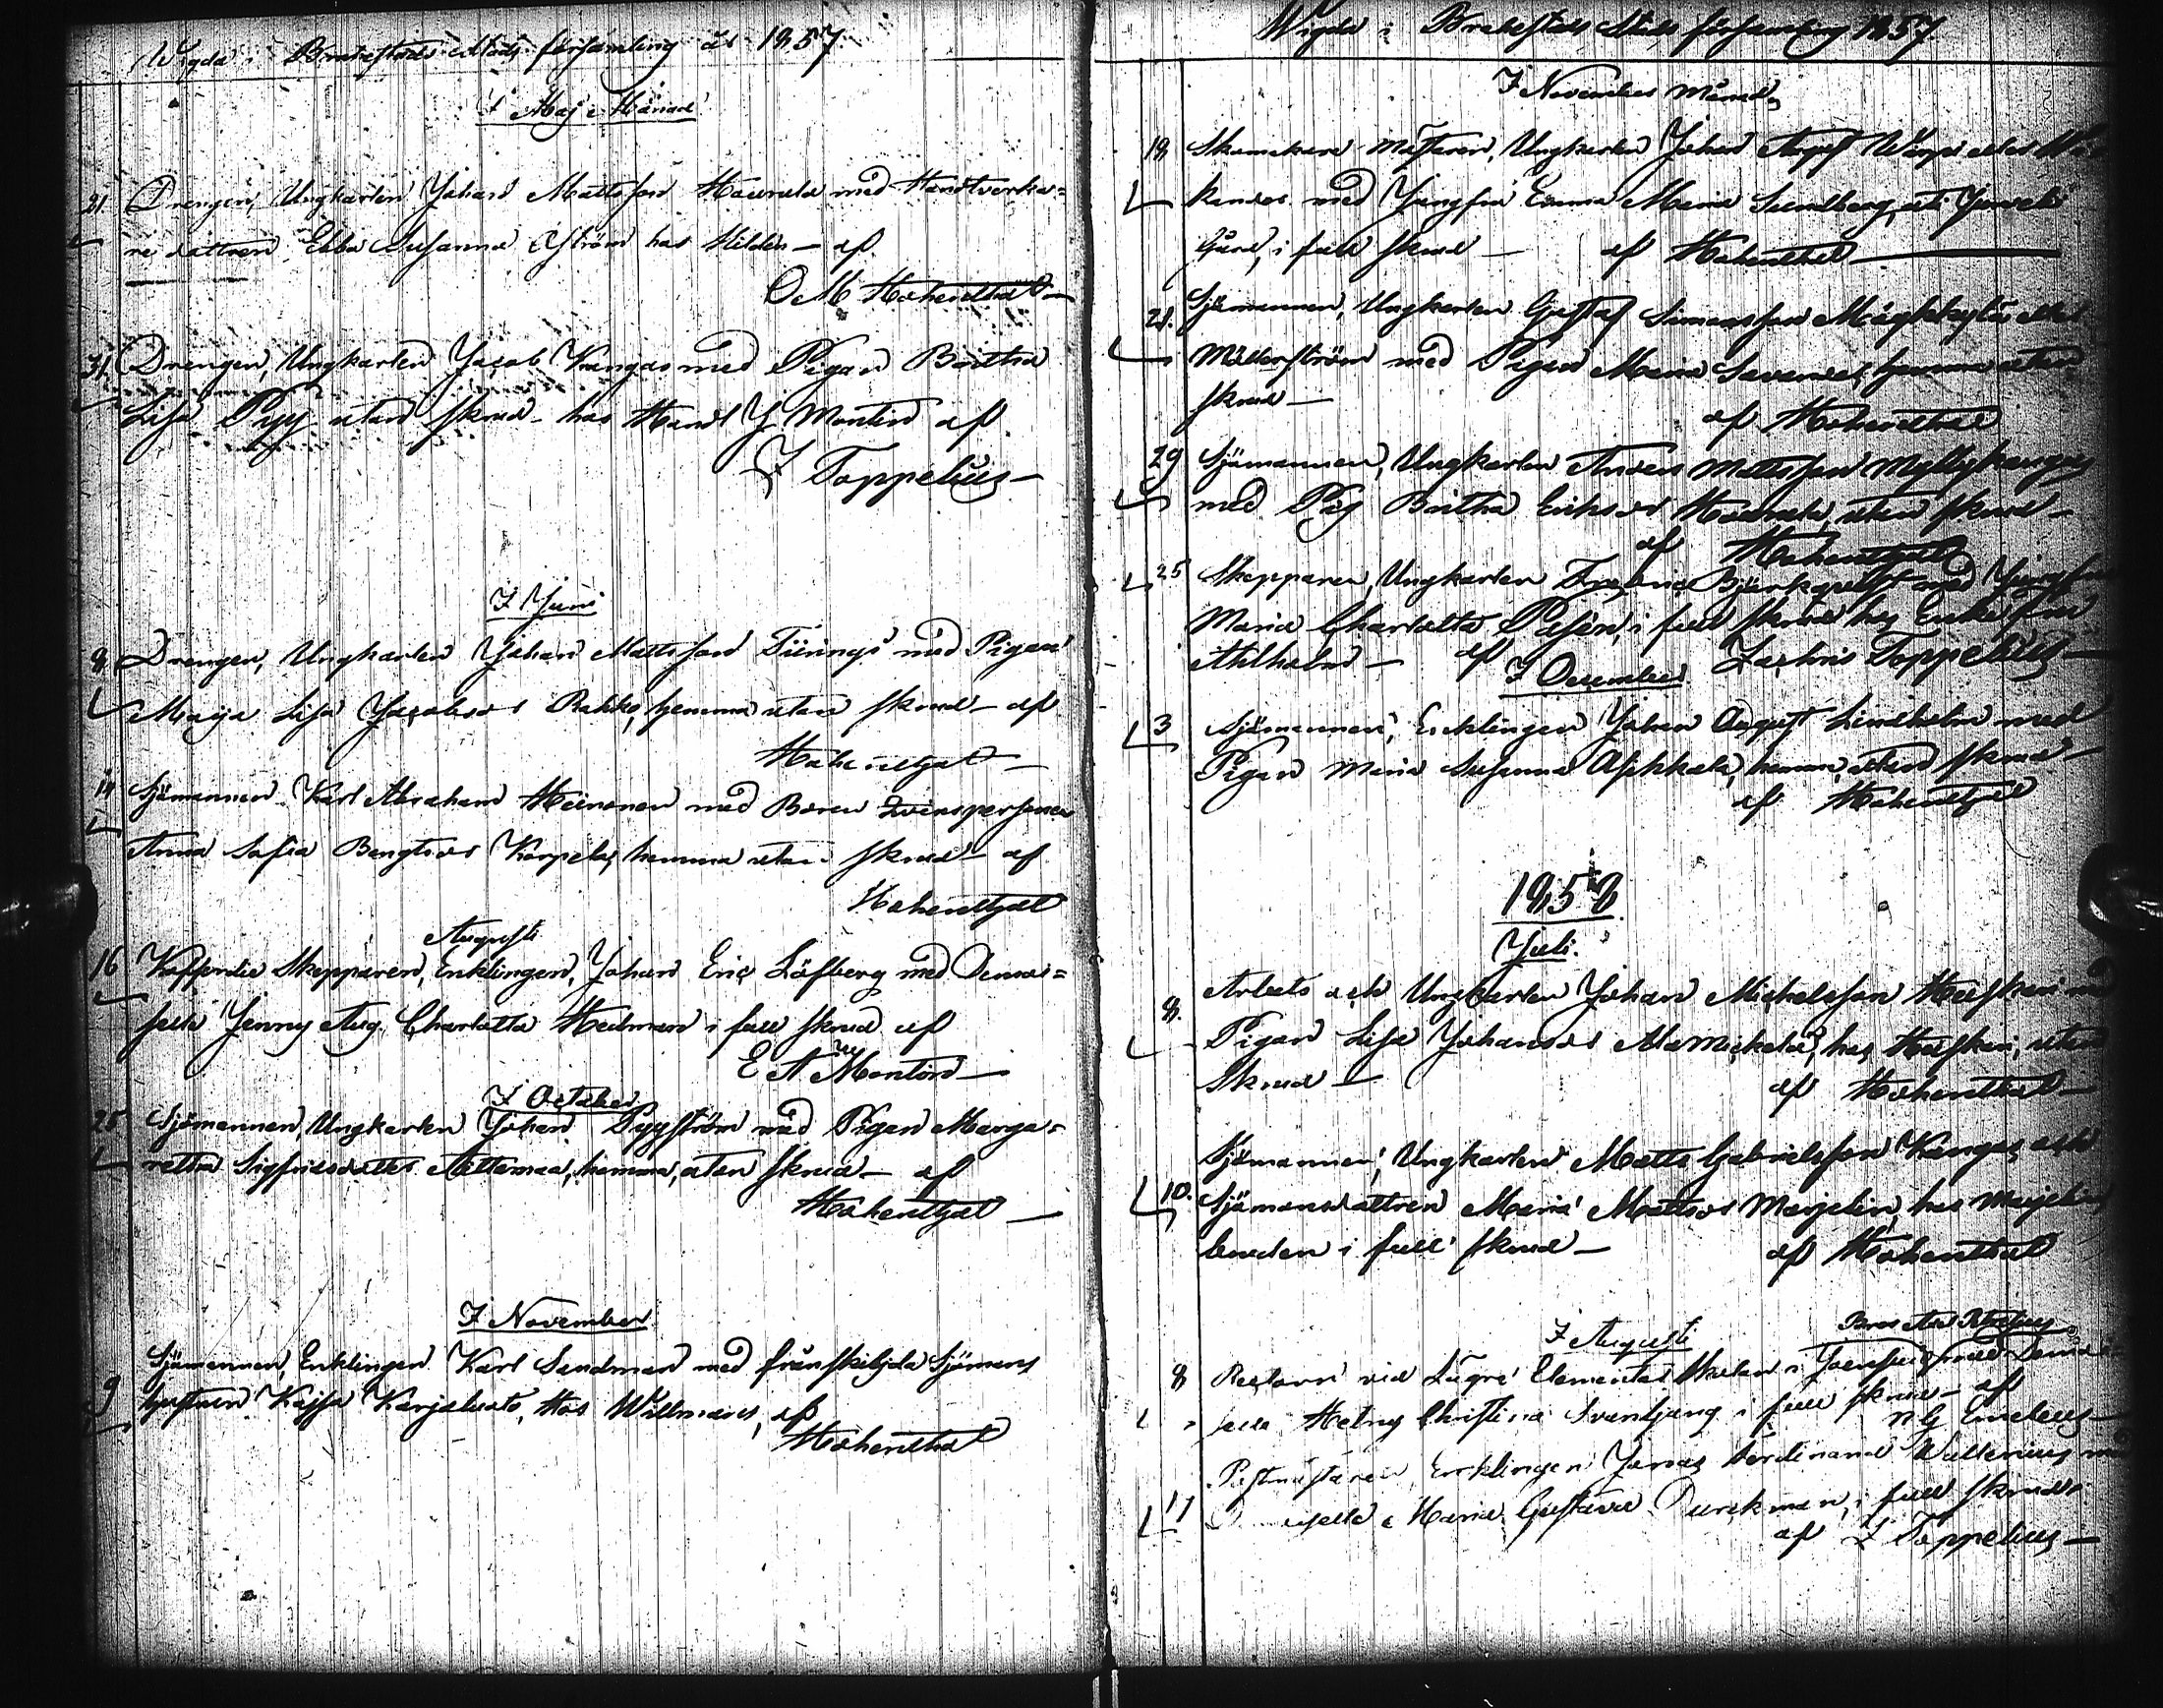 Wigda i Brahestads Stads församling år 1857.
I Maj Månad
21. Drengen, Ungkarlen Johan Mattsson Haurula med Handtverka=
re dottren Ebba Susanna Åström hos Hildén – af
O M Hohenthal –
31. Drengen, Ungkarlen Jacob Kangas med Pigan Britha
Lisa Pyy utan skrud – hos Handl J Montin af
Z Toppelius –
I Juni
8 Drengen, Ungkarlen Johan Mattsson Tiiringi med Pigan
Maija Lisa Jacobsdr Rahko, hemma utan skrud – af
Hohenthal –
14 Sjömannen Karl Abraham Heinonen med
Anna Sofia Bengtsdr Karpela, hemma utan skrud – af
Hohenthal
Augusti
16 Kofferdie Skepparen, Enklingen, Johan Eric Löfberg med Demoi=
selle Jenny Aug. Charlotta Heilman i full skrud af
E A Montin –
I October
25 Sjömannen, Ungkarlen Johan Pyyström med Pigan Marga=
retha Sigfridsdotter Aittamaa, hemma, utan skrud – af
Hohenthal –
I November
9 Sjömannen, Enklingen Karl Sandman med frånskiljda Sjömans
hustrun Kajsa Karjaluoto, Hos Willman, af
Hohenthal
Wigda i Brahestads Stads församling 1857.
I November Månad
18 Skomakare Mästaren, Ungkarlen Johan August
med Jungfru Emma Maria Sundberg,
Gård, i full skrud – af Hohenthal
21. Sjömannen, Ungkarlen Gustaf Simonsson eller
Möllerström med Pigan Maria hemma utan
skrud – af Hohenthal
29 Sjömannen, Ungkarlen Anders Mattsson Myllykangas
med Pig Britha Eriksdr Haurula, utan skrud –
af Hohenthal
25 Skepparen, Ungkarlen Fredric Björkqvist med Jungfru
Maria Charlotta Pasén, i full skrud hos Enkefru
Ahlholm – af Zachris Toppelius –
I December
3 Sjömannen, Encklingen Johan August Lindholm med
Pigan Maria Susanna Asikkala, hemma, utan skrud –
af Hohenthal
1858.
Juli.
8. Arbets och Ungkarlen Johan Michelsson Heiskari med
Pigan Lisa Johansdr Alamickela, hos Heiskari, utan
Skrud – af Hohenthal –
10. Sjömannen, Ungkarlen Matts Gabrielsson Kangas och
Sjömansdottren Maria Mattsdr Marjelin, hos Marjelins
bruden i full skrud – af Hohenthal
I Augusti
8 Rectorn vid Lägre Elementar Skolan i Joensuu med Demoi=
selle Helny Christina Svanljung i full skrud – af
N G
17 Postmästaren, Encklingen Jonas Ferdinand Wallenius med
Maria Gustava Durchman, i full skrud
af Z Toppelius –